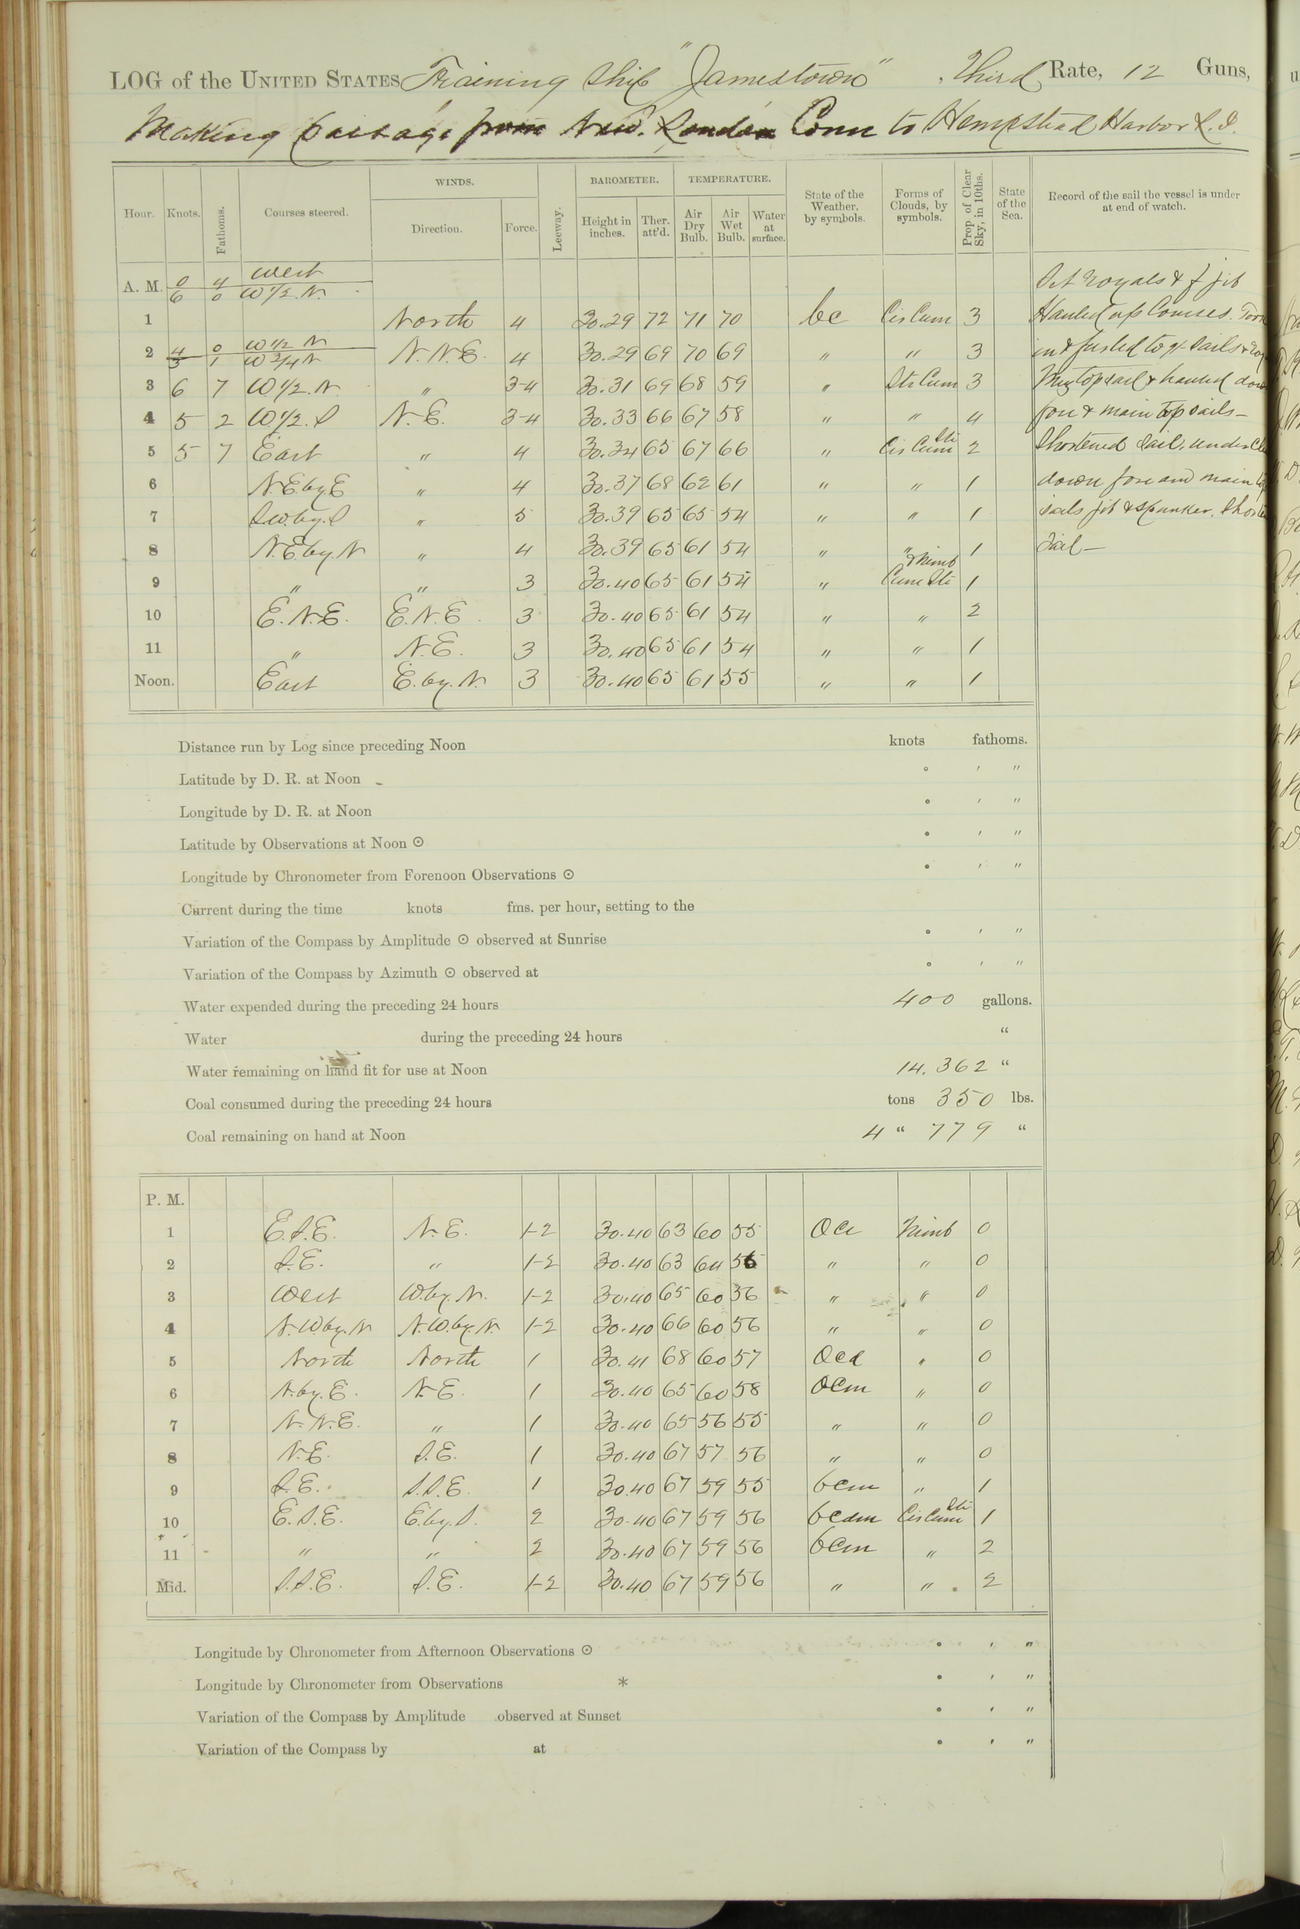 LOG of the UNITED STATES Training Ship "Jamestown", Third Rate, 12 Guns,
Making passage from New London Conn to Hempstead Harbor L.I.
Hour. Knots. Fathoms. Courses steered. WINDS. Direction. Force. Leeway. BAROMETER. Height in inches. Ther. att'd. TEMPERATURE. Air Dry Bulb. Air Wet Bulb. Water at surface. State of the Weather, by symbols. Forms of Clouds, by symbols. Prop. of Clear Sky, in 10ths. State of the Sea. Record of the sail the vessel is under at end of watch.
A. M. 0 4 West
6 0 W 1/2 N. Set royals & f jib
1 North 4 30.29 72 71 70 bc Cir Cum 3 Hauled up Courses. Took
2 4 0 W 1/2 N
3 1 W 3/4 N N.N.E. 4 30.29 69 70 69 " " 3 in & furled to'g'l sails &
3 6 7 W 1/2 N. " 3-4 30.31 69 68 59 " Str Cum 3 Miz topsail & hauled down
4 5 2 W 1/2 S N.E. 3-4 30.33 66 67 58 " " 4 fore & main topsails—
5 5 7 East " 4 30.34 65 67 66 " Cir Cum Str 2 Shortened Sail, under
6 N.E. by E " 4 30.37 68 62 61 " " 1 down fore and main
7 S.W. by S " 5 30.39 65 65 54 " " 1 sails jib & spanker.
8 N.E. by N " 4 30.39 65 61 54 " " 1 Sail—
9 " " 3 30.40 65 61 54 " & Nimb Cum Str 1
10 E.N.E. E.N.E. 3 30.40 65 61 54 " " 2
11 " N.E. 3 30.40 65 61 54 " " 1
Noon. East E. by N. 3 30.40 65 61 55 " " 1
Distance run by Log since preceding Noon knots fathoms.
Latitude by D. R. at Noon ° ' "
Longitude by D. R. at Noon ° ' "
Latitude by Observations at Noon ☉ ° ' "
Longitude by Chronometer from Forenoon Observations ☉ ° ' "
Current during the time knots fms. per hour, setting to the
Variation of the Compass by Amplitude ☉ observed at Sunrise ° ' "
Variation of the Compass by Azimuth ☉ observed at ° ' "
Water expended during the preceding 24 hours 400 gallons.
Water during the preceding 24 hours "
Water remaining on hand fit for use at Noon 14.362 "
Coal consumed during the preceding 24 hours tons 350 lbs.
Coal remaining on hand at Noon 4 " 779 "
P. M.
1 E.S.E. N.E. 1-2 30.40 63 60 55 Oc Nimb 0
2 S.E. " 1-2 30.40 63 60 56 " " 0
3 West W. by N. 1-2 30.40 65 60 56 " " 0
4 N.W. by N N.W. by N. 1-2 30.40 66 60 56 " " 0
5 North North 1 30.41 68 60 57 Ocd " 0
6 N. by E. N.E. 1 30.40 65 60 58 Ocm " 0
7 N.N.E. " 1 30.40 65 56 55 " " 0
8 N.E. S.E. 1 30.40 67 57 56 " " 0
9 S.E. S.S.E. 1 30.40 67 59 55 bcm " 1
10 E.S.E. E. by S. 2 30.40 67 59 56 bcdm Cir Cum Str 1
11 " " 2 30.40 67 59 56 bcm " 2
Mid. S.S.E. S.E. 1-2 30.40 67 59 56 " " 2
Longitude by Chronometer from Afternoon Observations ☉ ° ' "
Longitude by Chronometer from Observations * ° ' "
Variation of the Compass by Amplitude observed at Sunset ° ' "
Variation of the Compass by at ° ' "